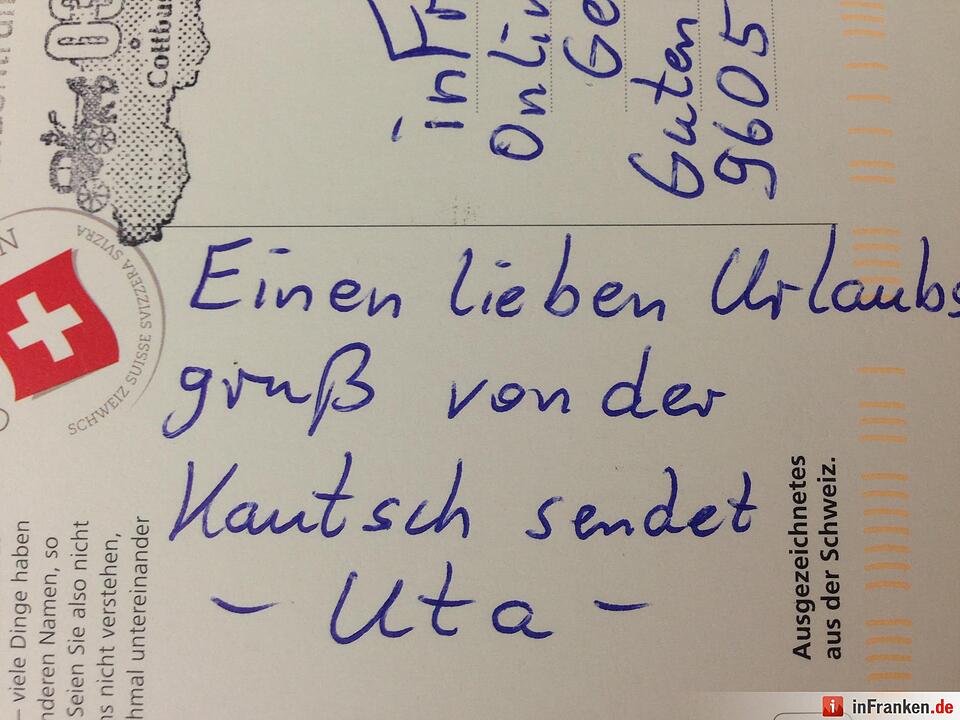 Einen lieben Urlaubs
gruß von der
Kautsch sendet
- Uta -
Guten
9605
Cottbu
SCHWEIZ SUISSE SVIZZERA SVIZRA
– viele Dinge haben
nderen Namen, so
Seien Sie also nicht
ns nicht verstehen,
hmal untereinander
Ausgezeichnetes
aus der Schweiz.
inFranken.de